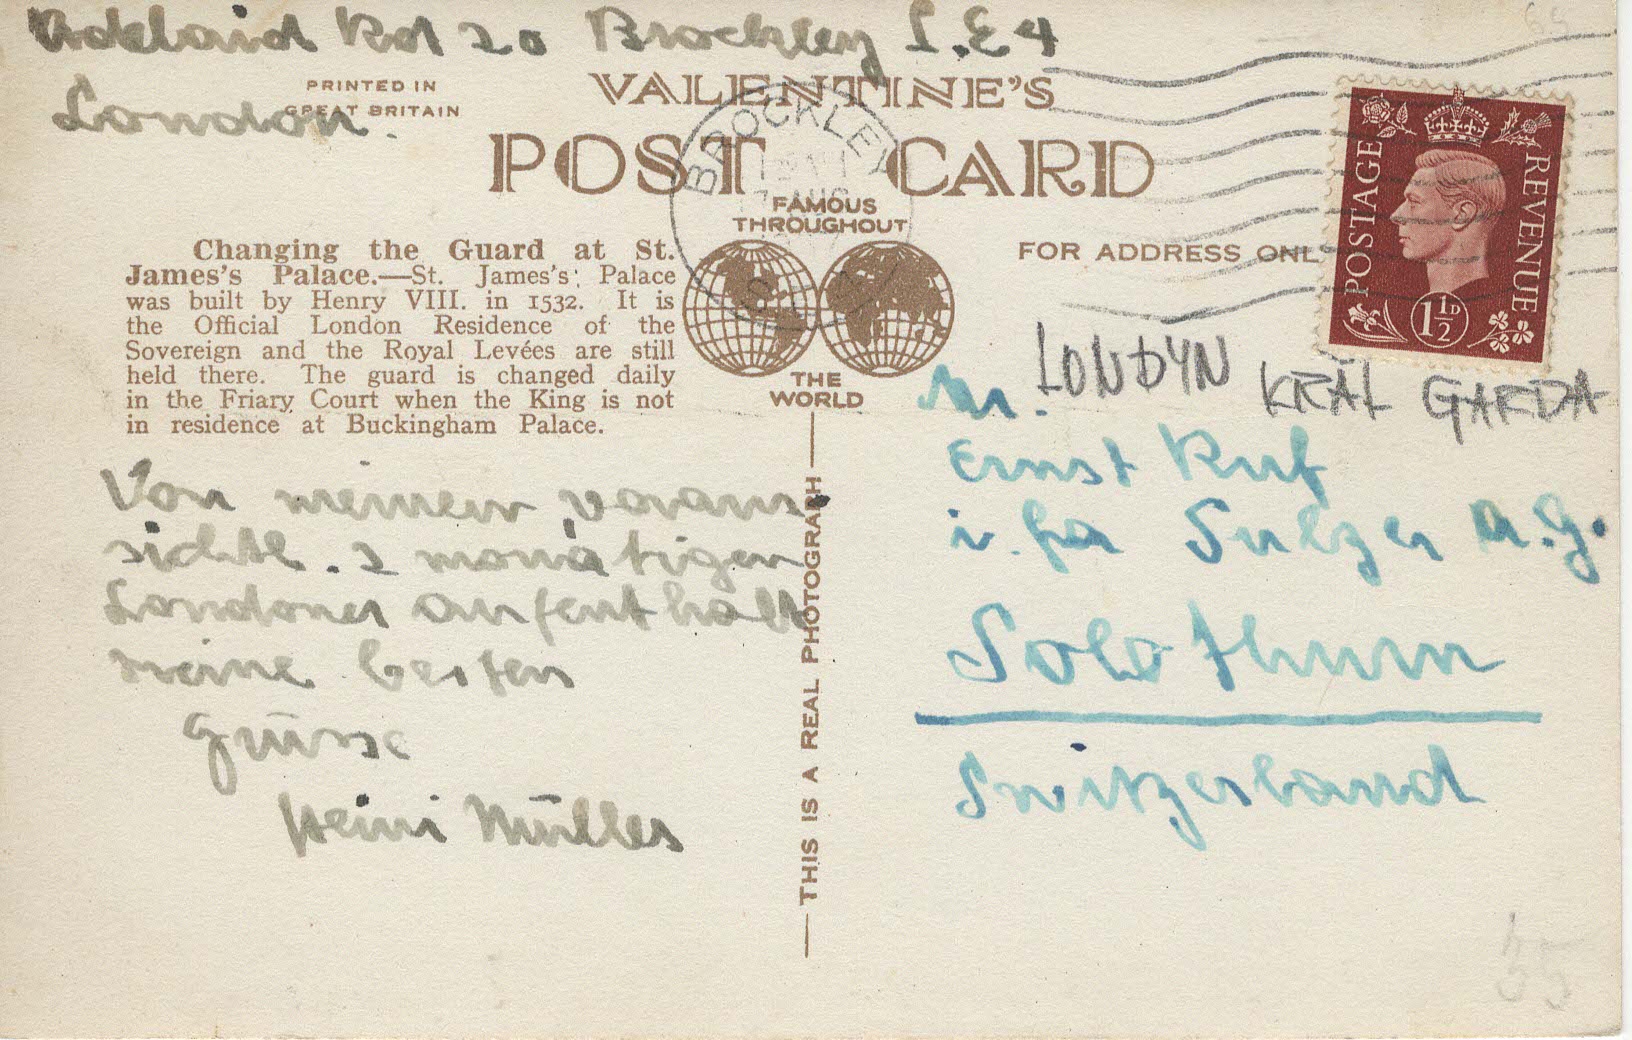 Adelaid Rd 20 Brockley S.E4
London.
PRINTED IN
GREAT BRITAIN
VALENTINE'S
POST CARD
FAMOUS
THROUGHOUT
THE
WORLD
BROCKLEY
AUG
FOR ADDRESS ONL
POSTAGE
REVENUE
1½D
Changing the Guard at St.
James's Palace.—St. James's Palace
was built by Henry VIII. in 1532. It is
the Official London Residence of the
Sovereign and the Royal Levées are still
held there. The guard is changed daily
in the Friary Court when the King is not
in residence at Buckingham Palace.
Von meinem voraus
sichtl. 2 monatigen
Londoner Aufenthalt
meine besten
Grüsse
Heini Müller
THIS IS A REAL PHOTOGRAPH
LONDYN KRÁL GARDA
Mr.
Ernst Ruf
i. fa Sulzer A.G.
Solothurn
Switzerland
35